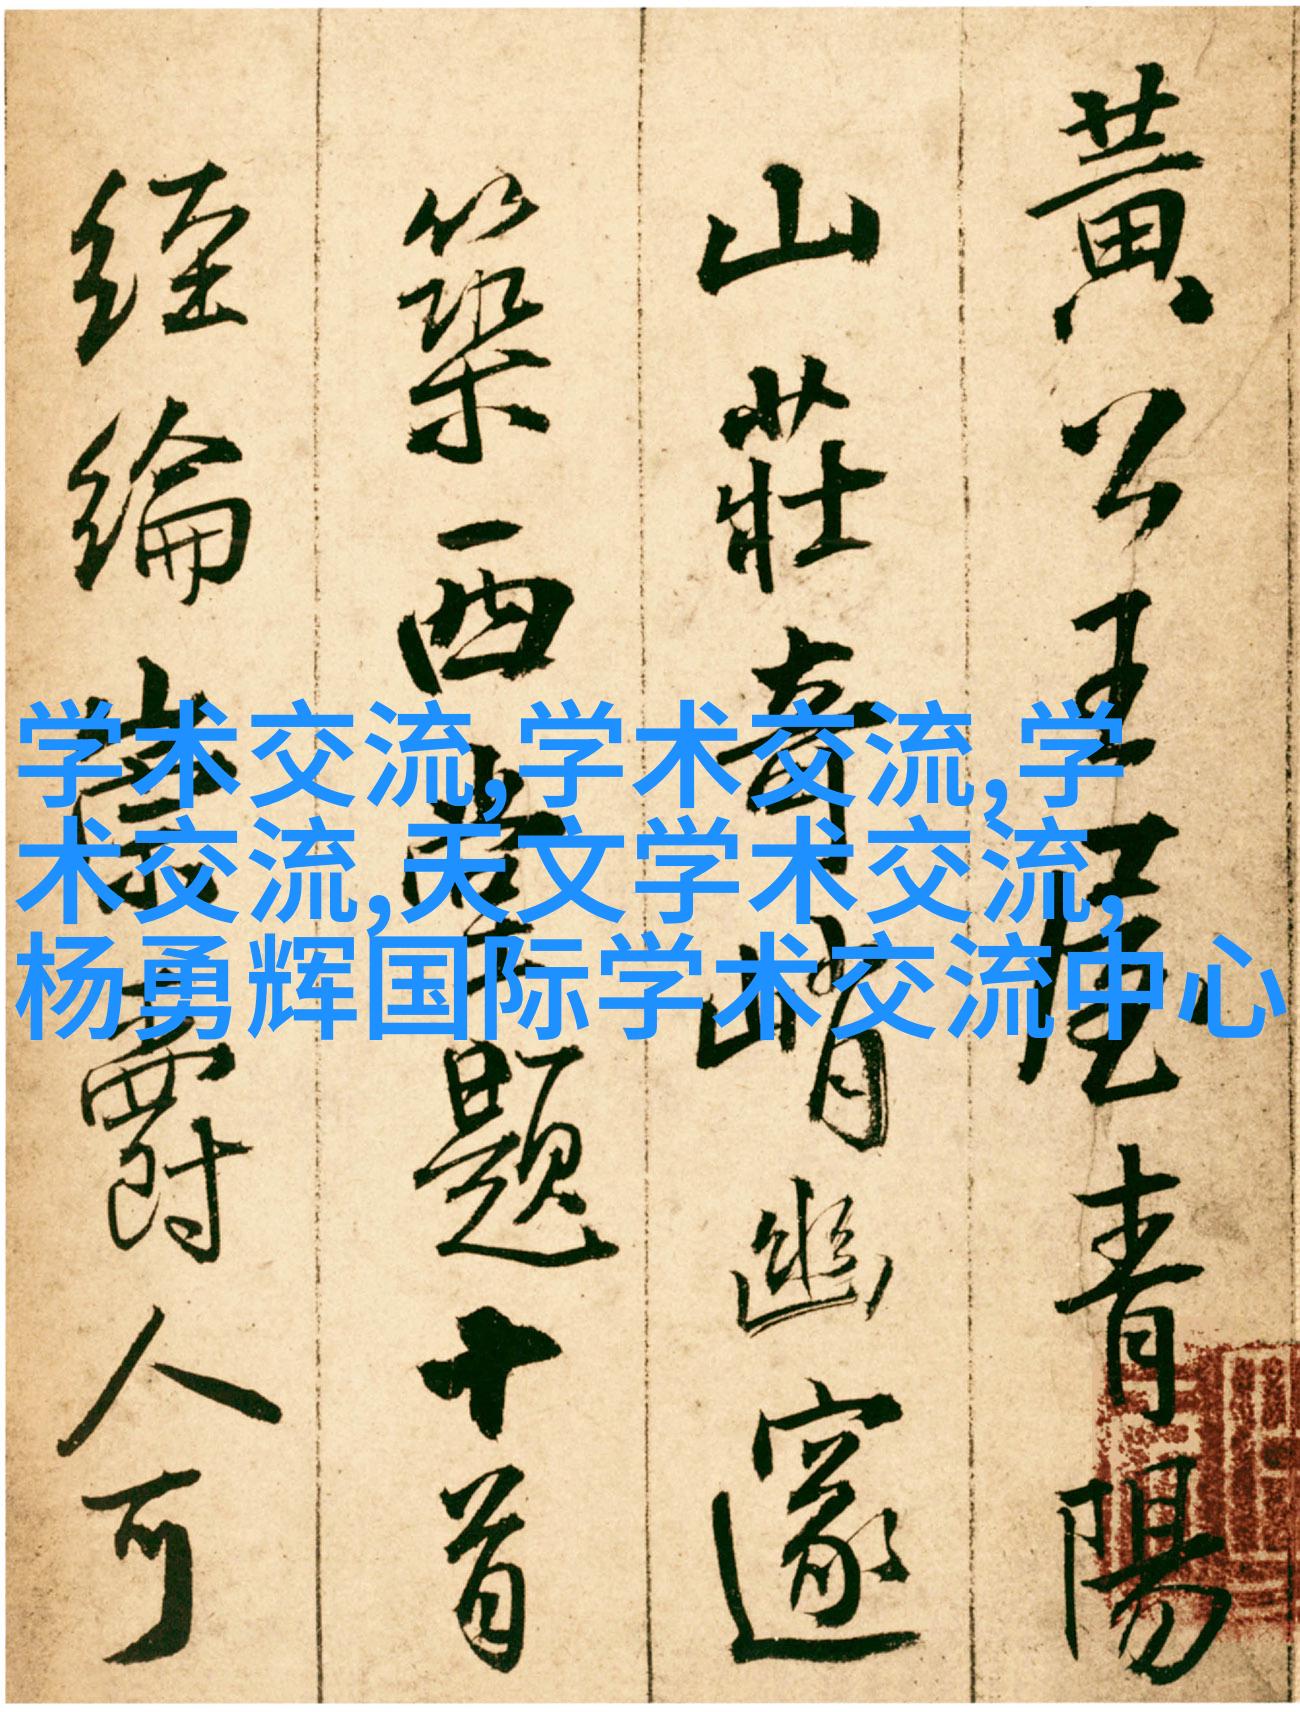 黃公王屋青陽
山莊奇峭幽邃
築西題十首
經綸崇爵人可
学术交流,学术交流,学
术交流,天文学术交流,
杨勇辉国际学术交流中心